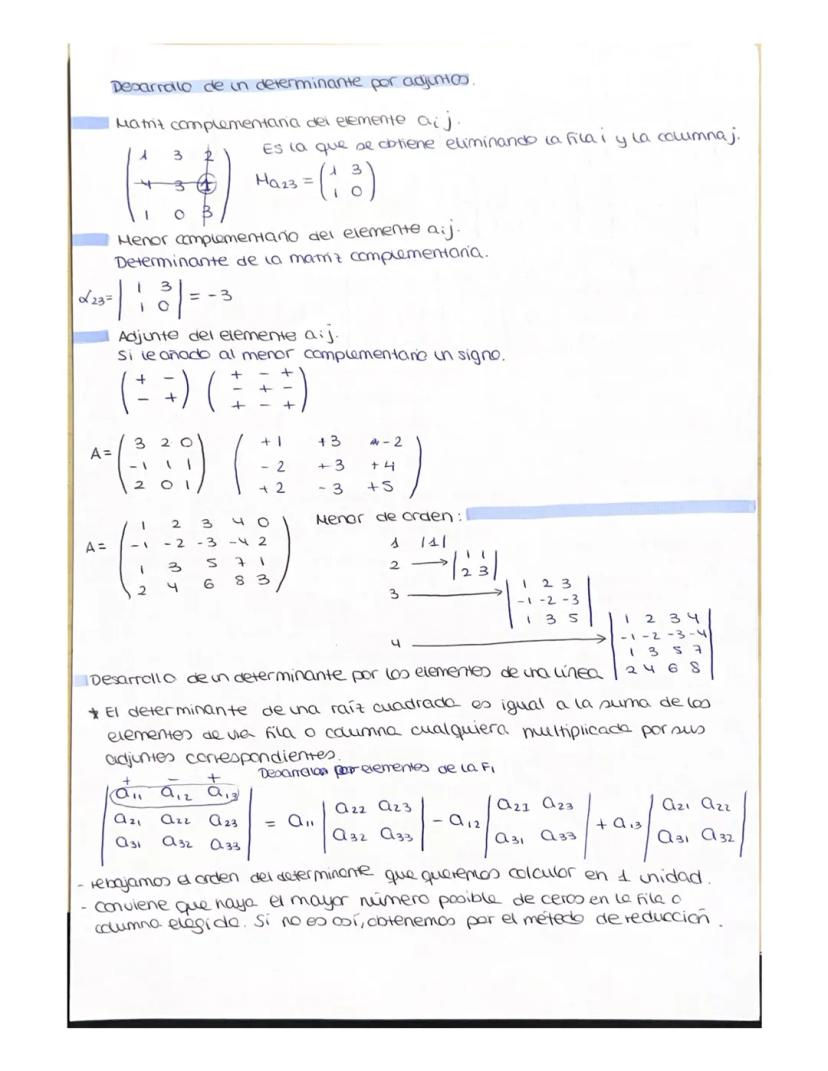 Desarrollo de un determinante por adjuntos.
Matriz complementaria del elemento aij.
Es la que se obtiene eliminando la fila i y la columna j.
1 3 2
4 3 1
1 0 3
Ma23 = ( 1 3
1 0 )
Menor complementario del elemento aij.
Determinante de la matriz complementaria.
α23 = | 1 3
1 0 | = -3
Adjunto del elemento aij.
Si le añado al menor complementario un signo.
( + -
- + )
( + - +
- + -
+ - + )
A = ( 3 2 0
-1 1 1
2 0 1 )
( +1 +3 -2
-2 +3 +4
+2 -3 +5 )
A = ( 1 2 3 4 0
-1 -2 -3 -4 2
1 3 5 7 1
2 4 6 8 3 )
Menor de orden:
1 |1|
2 → | 1 1
2 3 |
3 → | 1 2 3
-1 -2 -3
1 3 5 |
4 → | 1 2 3 4
-1 -2 -3 -4
1 3 5 7
2 4 6 8 |
Desarrollo de un determinante por los elementos de una línea
* El determinante de una raíz cuadrada es igual a la suma de los
elementos de una fila o columna cualquiera multiplicada por sus
adjuntos correspondientes.
Desarrollan por elementos de la F1
+ - +
| a11 a12 a13
a21 a22 a23
a31 a32 a33 |
= a11 | a22 a23
a32 a33 |
- a12 | a21 a23
a31 a33 |
+ a13 | a21 a22
a31 a32 |
- rebajamos el orden del determinante que queremos calcular en 1 unidad.
- Conviene que haya el mayor número posible de ceros en la fila o
columna elegida. Si no es así, obtenemos por el método de reducción.